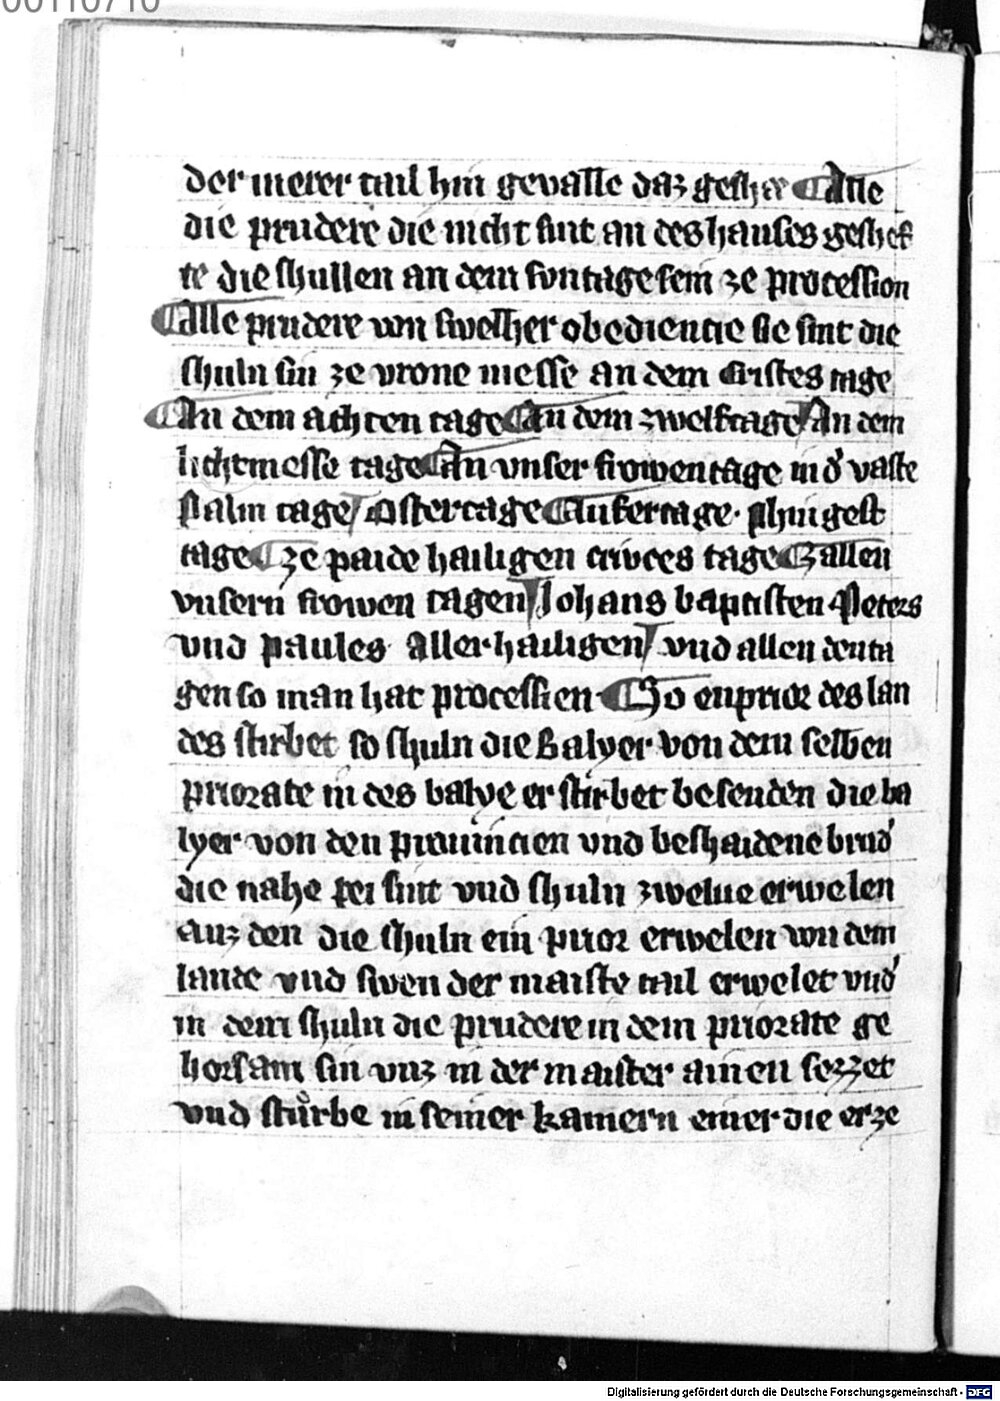 00110710
der merer tail hin gevalle daz geshee Alle
die prudere die nicht sint an des hauses geshef
te die shullen an dem sontage sein ze procession
Alle prudere von swelher obediencie sie sint die
shuln sin ze vrone messe an dem Cristes tage
An dem achten tage An dem zwelftage An dem
lichtmesse tage An vnser frowen tage in d' vaste
Palm tage Ostertage Aufertage. phingest
tage ze paide hailigen cruces tage Z allen
vnsern frowen tagen Johans baptisten Peters
vnd paules Allerhailigen vnd allen den ta
gen so man hat processien So ein prior des lan
des stirbet so shuln die Balyer von dem selben
priorate in des balye er stirbet besenden die ba
lyer von den prouincien vnd beshaidene brud'
die nahe pei sint vnd shuln zwelue erwelen
auz den die shuln ein prior erwelen von dem
lande vnd swen der maiste tail erwelet vnd'
in dem shuln die prudere in dem priorate ge
horsam sin vnz in der maister ainen sezzet
vnd stuͤrbe in seiner kamern einer die erze
Digitalisierung gefördert durch die Deutsche Forschungsgemeinschaft - DFG